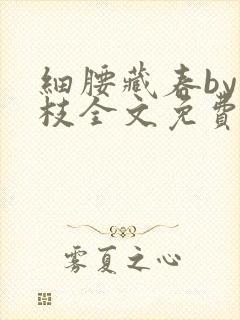 細腰藏春by
枝全文免費
雾夏之心